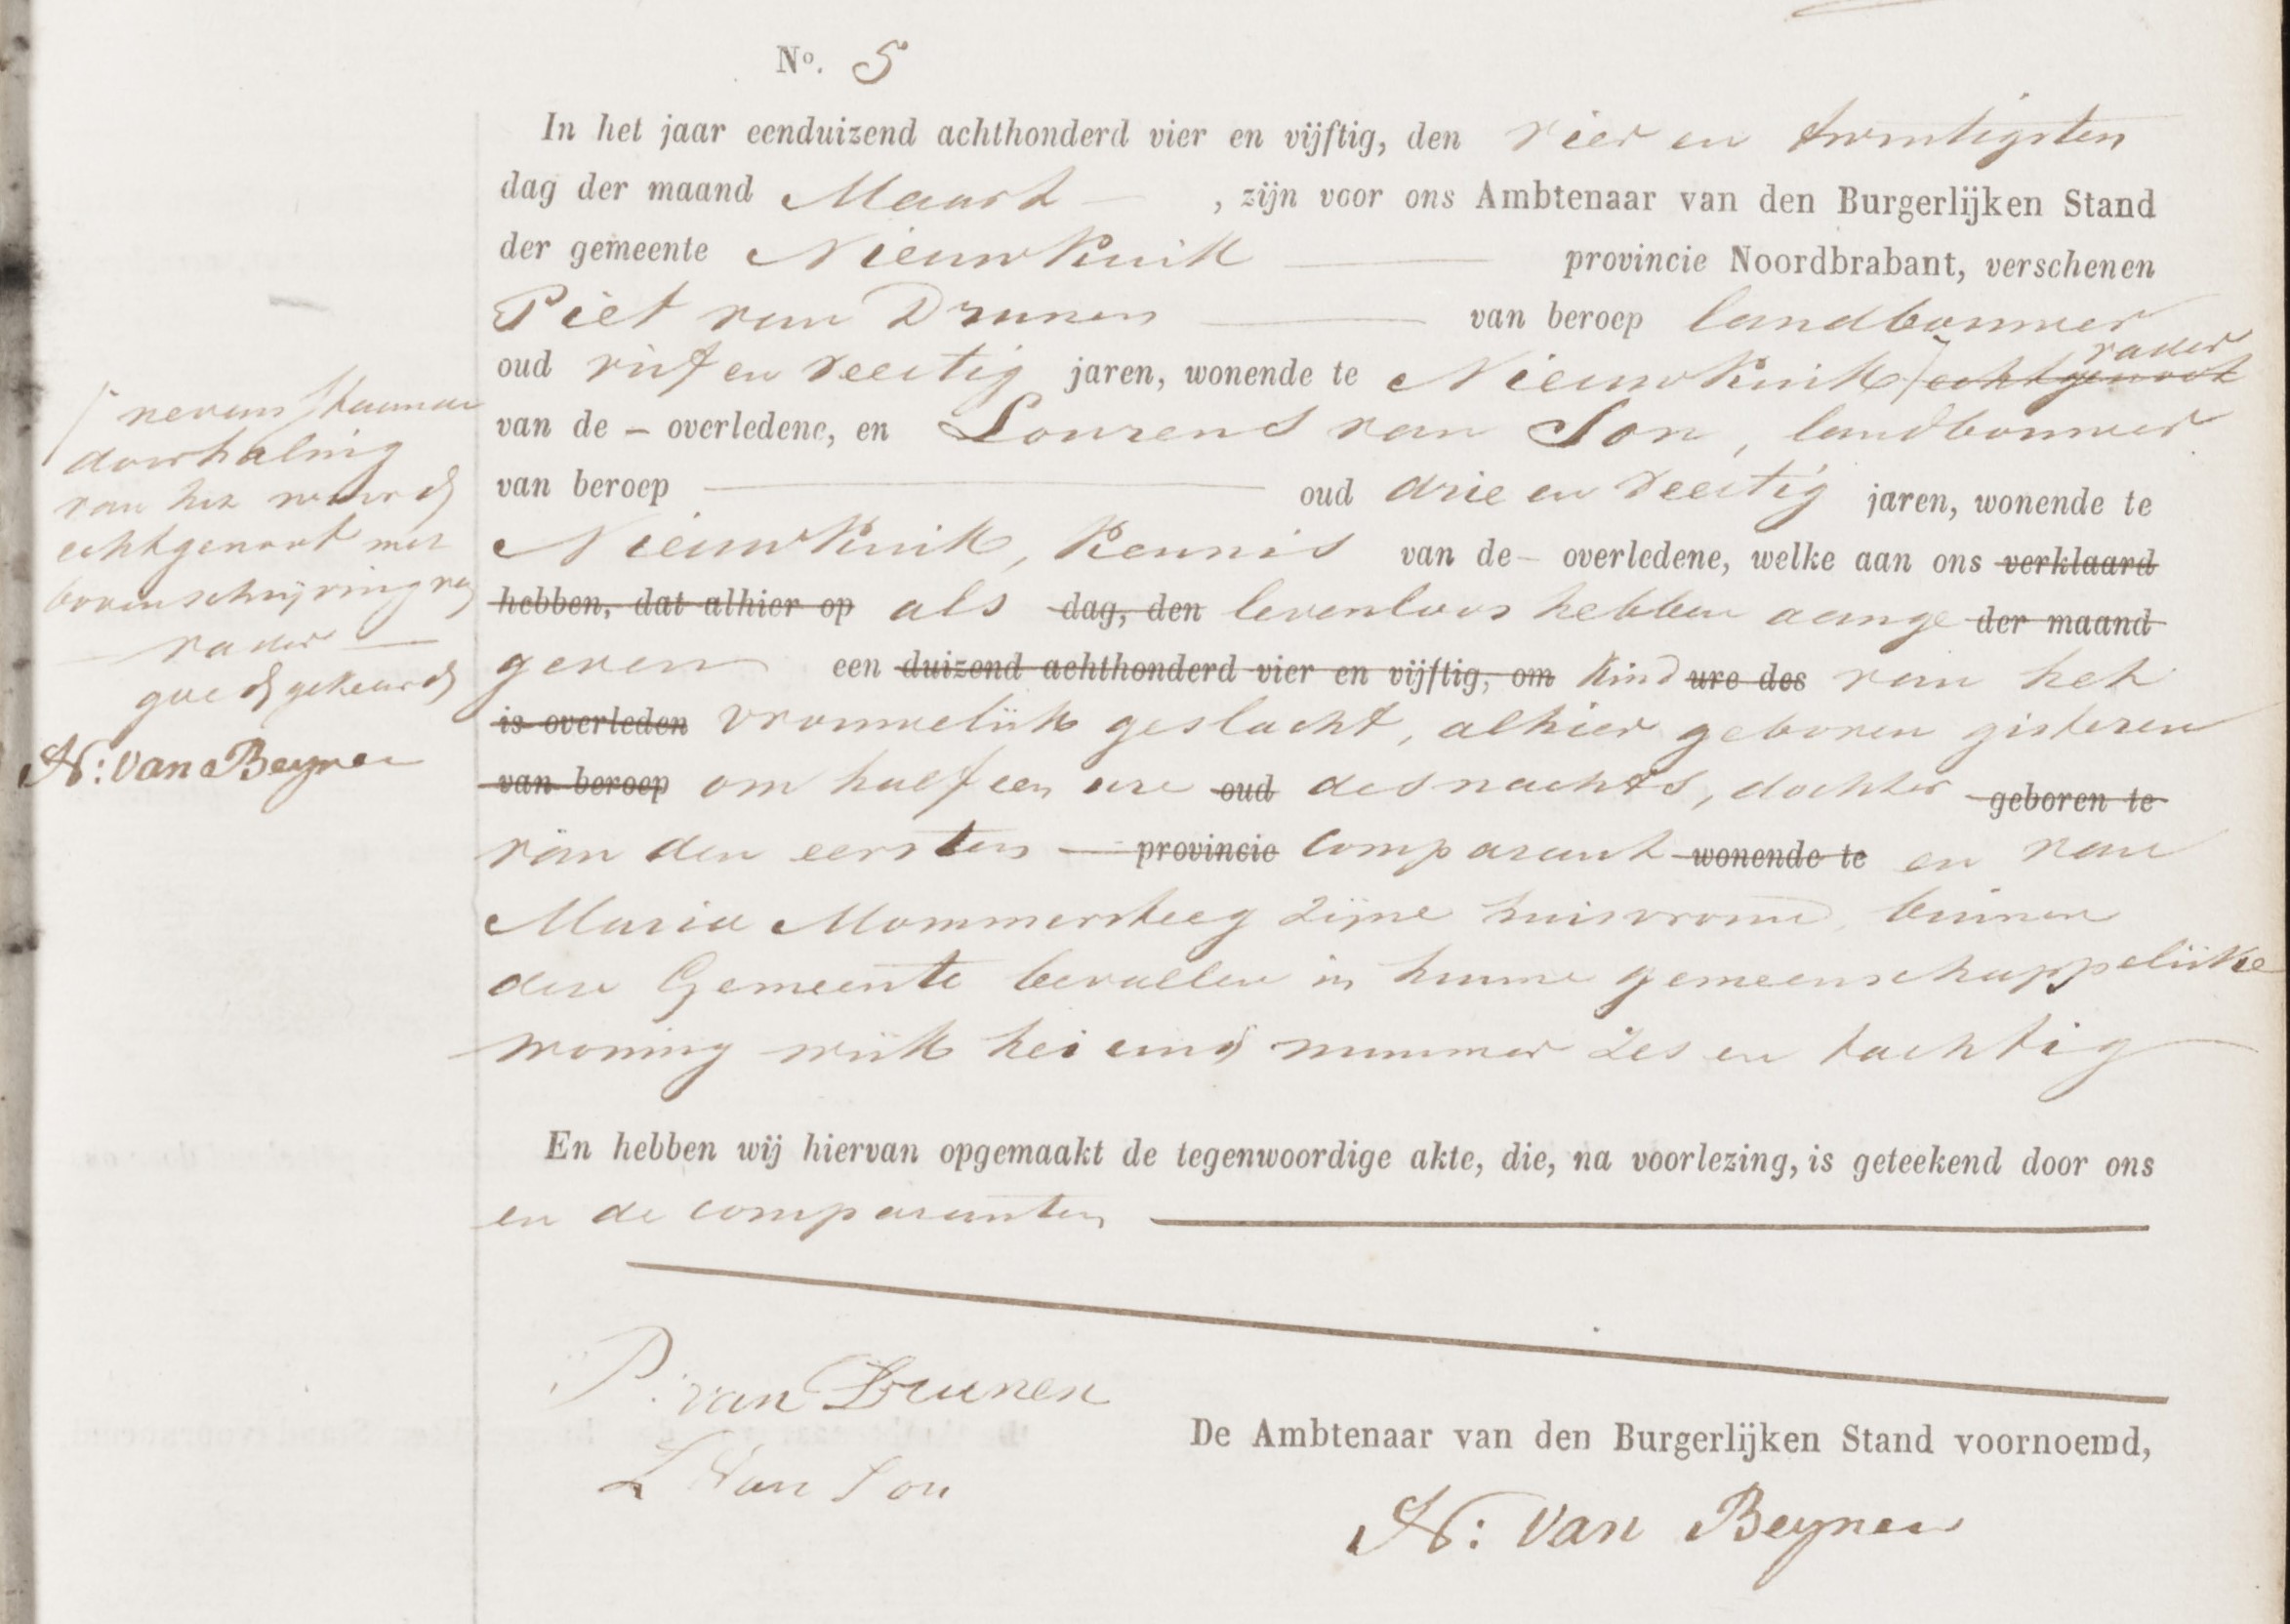 No. 5
In het jaar eenduizend achthonderd vier en vijftig, den vier en twintigsten
dag der maand Maart , zijn voor ons Ambtenaar van den Burgerlijken Stand
der gemeente Nieuwkuik provincie Noordbrabant, verschenen
Piet van Drunen van beroep landbouwer
vader
oud vijf en veertig jaren, wonende te Nieuwkuik echtgenoot
van de - overledene, en Lourens van Son, landbouwer
van beroep oud drie en veertig jaren, wonende te
Nieuwkuik, kennis van de - overledene, welke aan ons verklaard
hebben, dat alhier op als dag, den levenloos hebben aange der maand
geven een duizend achthonderd vier en vijftig, om kind ure des van het
is overleden vrouwelijk geslacht, alhier geboren gisteren
van beroep om half een ure oud des nachts, dochter geboren te
van den eersten provincie Comparant wonende te en van
Maria Mommersteeg zijne huisvrouw, binnen
deze Gemeente bevallen in hunne gemeenschappelijke
woning wijk hei eind nummer zes en tachtig
En hebben wij hiervan opgemaakt de tegenwoordige akte, die, na voorlezing, is geteekend door ons
en de comparanten
nevenstaande
doorhaling
van het woord
echtgenoot met
bovenschrijving van
vader
goedgekeurd
N: van Beynen
P. van Drunen
L Van Son
De Ambtenaar van den Burgerlijken Stand voornoemd,
N: Van Beynen